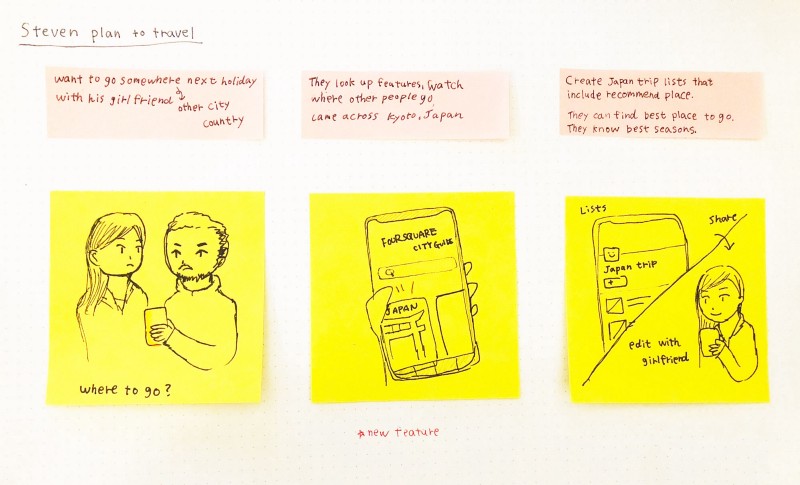 Steven plan to travel
want to go somewhere next holiday
with his girlfriend
other city
country
They look up features, Watch
where other people go
came across Kyoto, Japan
Create Japan trip lists that
include recommend place.
They can find best place to go.
They know best seasons.
where to go?
FOURSQUARE
CITY GUIDE
JAPAN
Lists
Share
Japan trip
+
edit with
girlfriend
*new feature